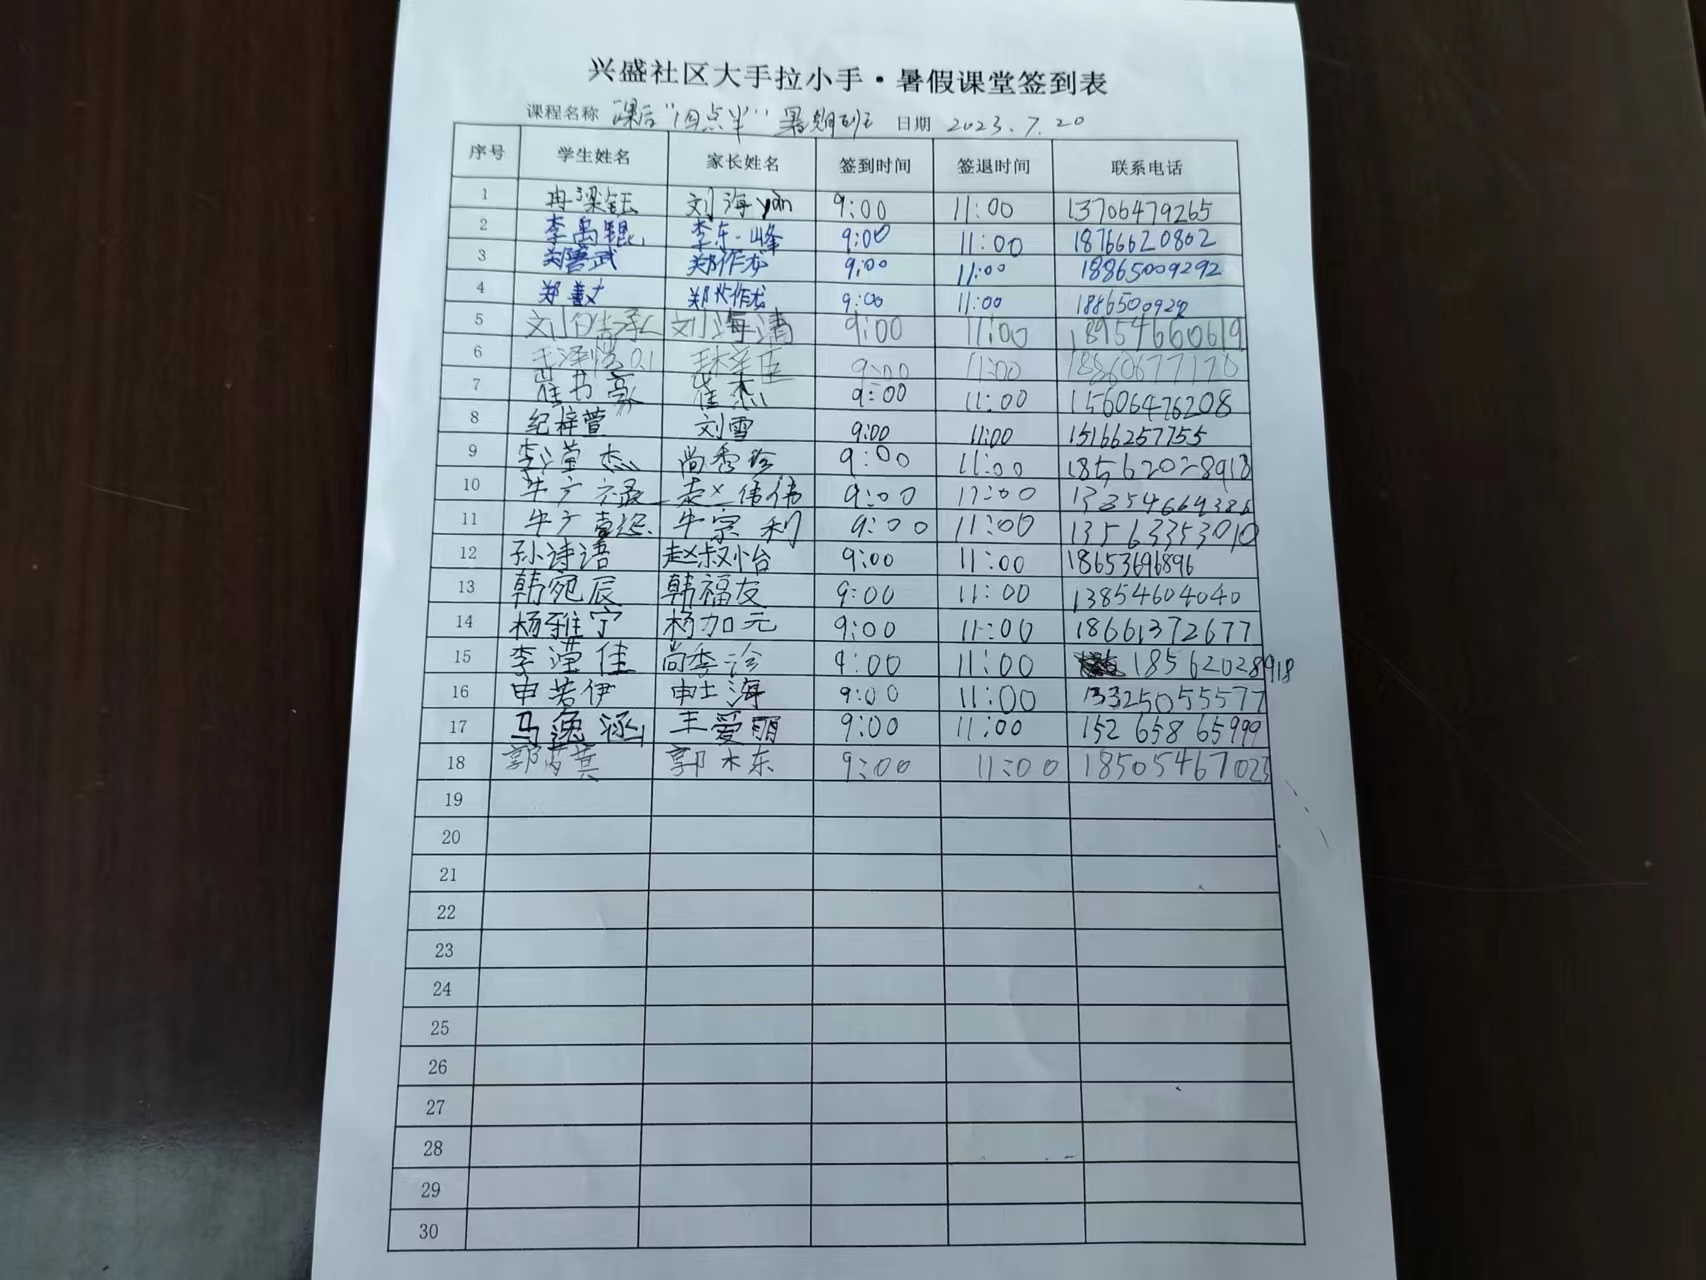 兴盛社区大手拉小手·暑假课堂签到表
课程名称 课后"四点半"暑期班 日期 2023.7.20
序号 学生姓名 家长姓名 签到时间 签退时间 联系电话
1 冉梁钰 刘海yan 9:00 11:00 13706479265
2 李禹锟 李东峰 9:00 11:00 18766620802
3 郑善武 郑作龙 9:00 11:00 18865009292
4 郑善文 郑作龙 9:00 11:00
5 刘传承 刘海清 9:00 11:00 18954660619
6 9:00 11:00
7 崔书豪 崔杰 9:00 11:00 15606476208
8 纪梓萱 刘雪 9:00 11:00 15166257755
9 李滢杰 尚秀珍 9:00 11:00 18562028918
10 牛广禄 赵伟伟 9:00 11:00
11 牛广 牛宗利 9:00 11:00 13563353010
12 孙诗语 赵叔怡 9:00 11:00 18653696896
13 韩宛辰 韩福友 9:00 11:00 13854604040
14 杨雅宁 杨加元 9:00 11:00 18661372677
15 李滢佳 尚季诊 9:00 11:00 18562028918
16 申若伊 申士海 9:00 11:00 13325055577
17 马逸涵 王爱丽 9:00 11:00 15265865999
18 郭 郭木东 9:00 11:00 18505467023
19
20
21
22
23
24
25
26
27
28
29
30